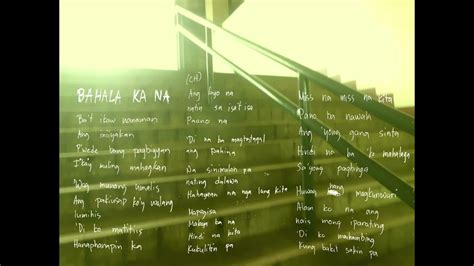 BAHALA KA NA
Ba't ikaw nanaman
Ang
P'wede bang pagbigyan
Ika'y muling mahagkan
Wag munang umalis
Ang pakiusap ko'y walang
lumihis
'Di ko matitiis
Hanaphanapin ka
(CH)
Ang layo na
natin sa isa't isa
Paano na
'Di na ba magtatagal
ang
Na sinimulan pa
nating dalawa
Hahayaan na nga lang kita
Malayo ka na
Hindi na kita
Kukulitin pa
Miss na miss na kita
Pano ba nawala
Ang 'yong
Hindi na ba 'ko mahalaga
Sa'yong paningin
Huwag nang magkunwari
Alam ko na ang
nais mong iparating
'Di ko maihambing
Kung bakit sakin pa